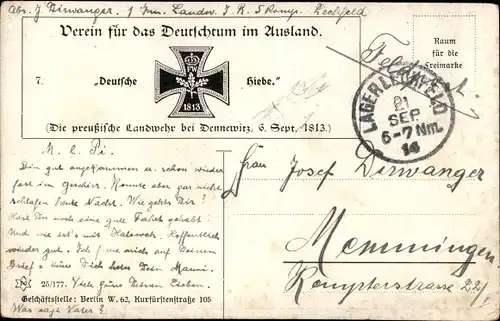 Abs. J. Dirwanger. 1 Inn. Landw. J. R. 5 Komp. Lechfeld
Verein für das Deutschtum im Ausland.
7. „Deutsche Hiebe.“
FW
1813
(Die preußische Landwehr bei Dennewitz, 6. Sept. 1813.)
Raum
für die
Freimarke
Feldpost
LAGER LECHFELD
21
SEP
6-7 Nm.
14
M. l. Pi.
Bin gut angekommen u. schon wieder
fest im Geschirr. Konnte aber gar nicht
schlafen heute Nacht. Wie gehts Dir?
Hast Du noch eine gute Fahrt gehabt?
Und wie ist's mit Halsweh. Hoffentlich
wieder gut. Ich freue mich auf Deinen
Brief u. küsse Dich Dein Manni.
Viele Grüße Lieben.
Was sagt Vater?
Frau Josef Dirwanger
Memmingen
Kempterstrasse 22/I.
25/177.
Geschäftsstelle: Berlin W. 62, Kurfürstenstraße 105